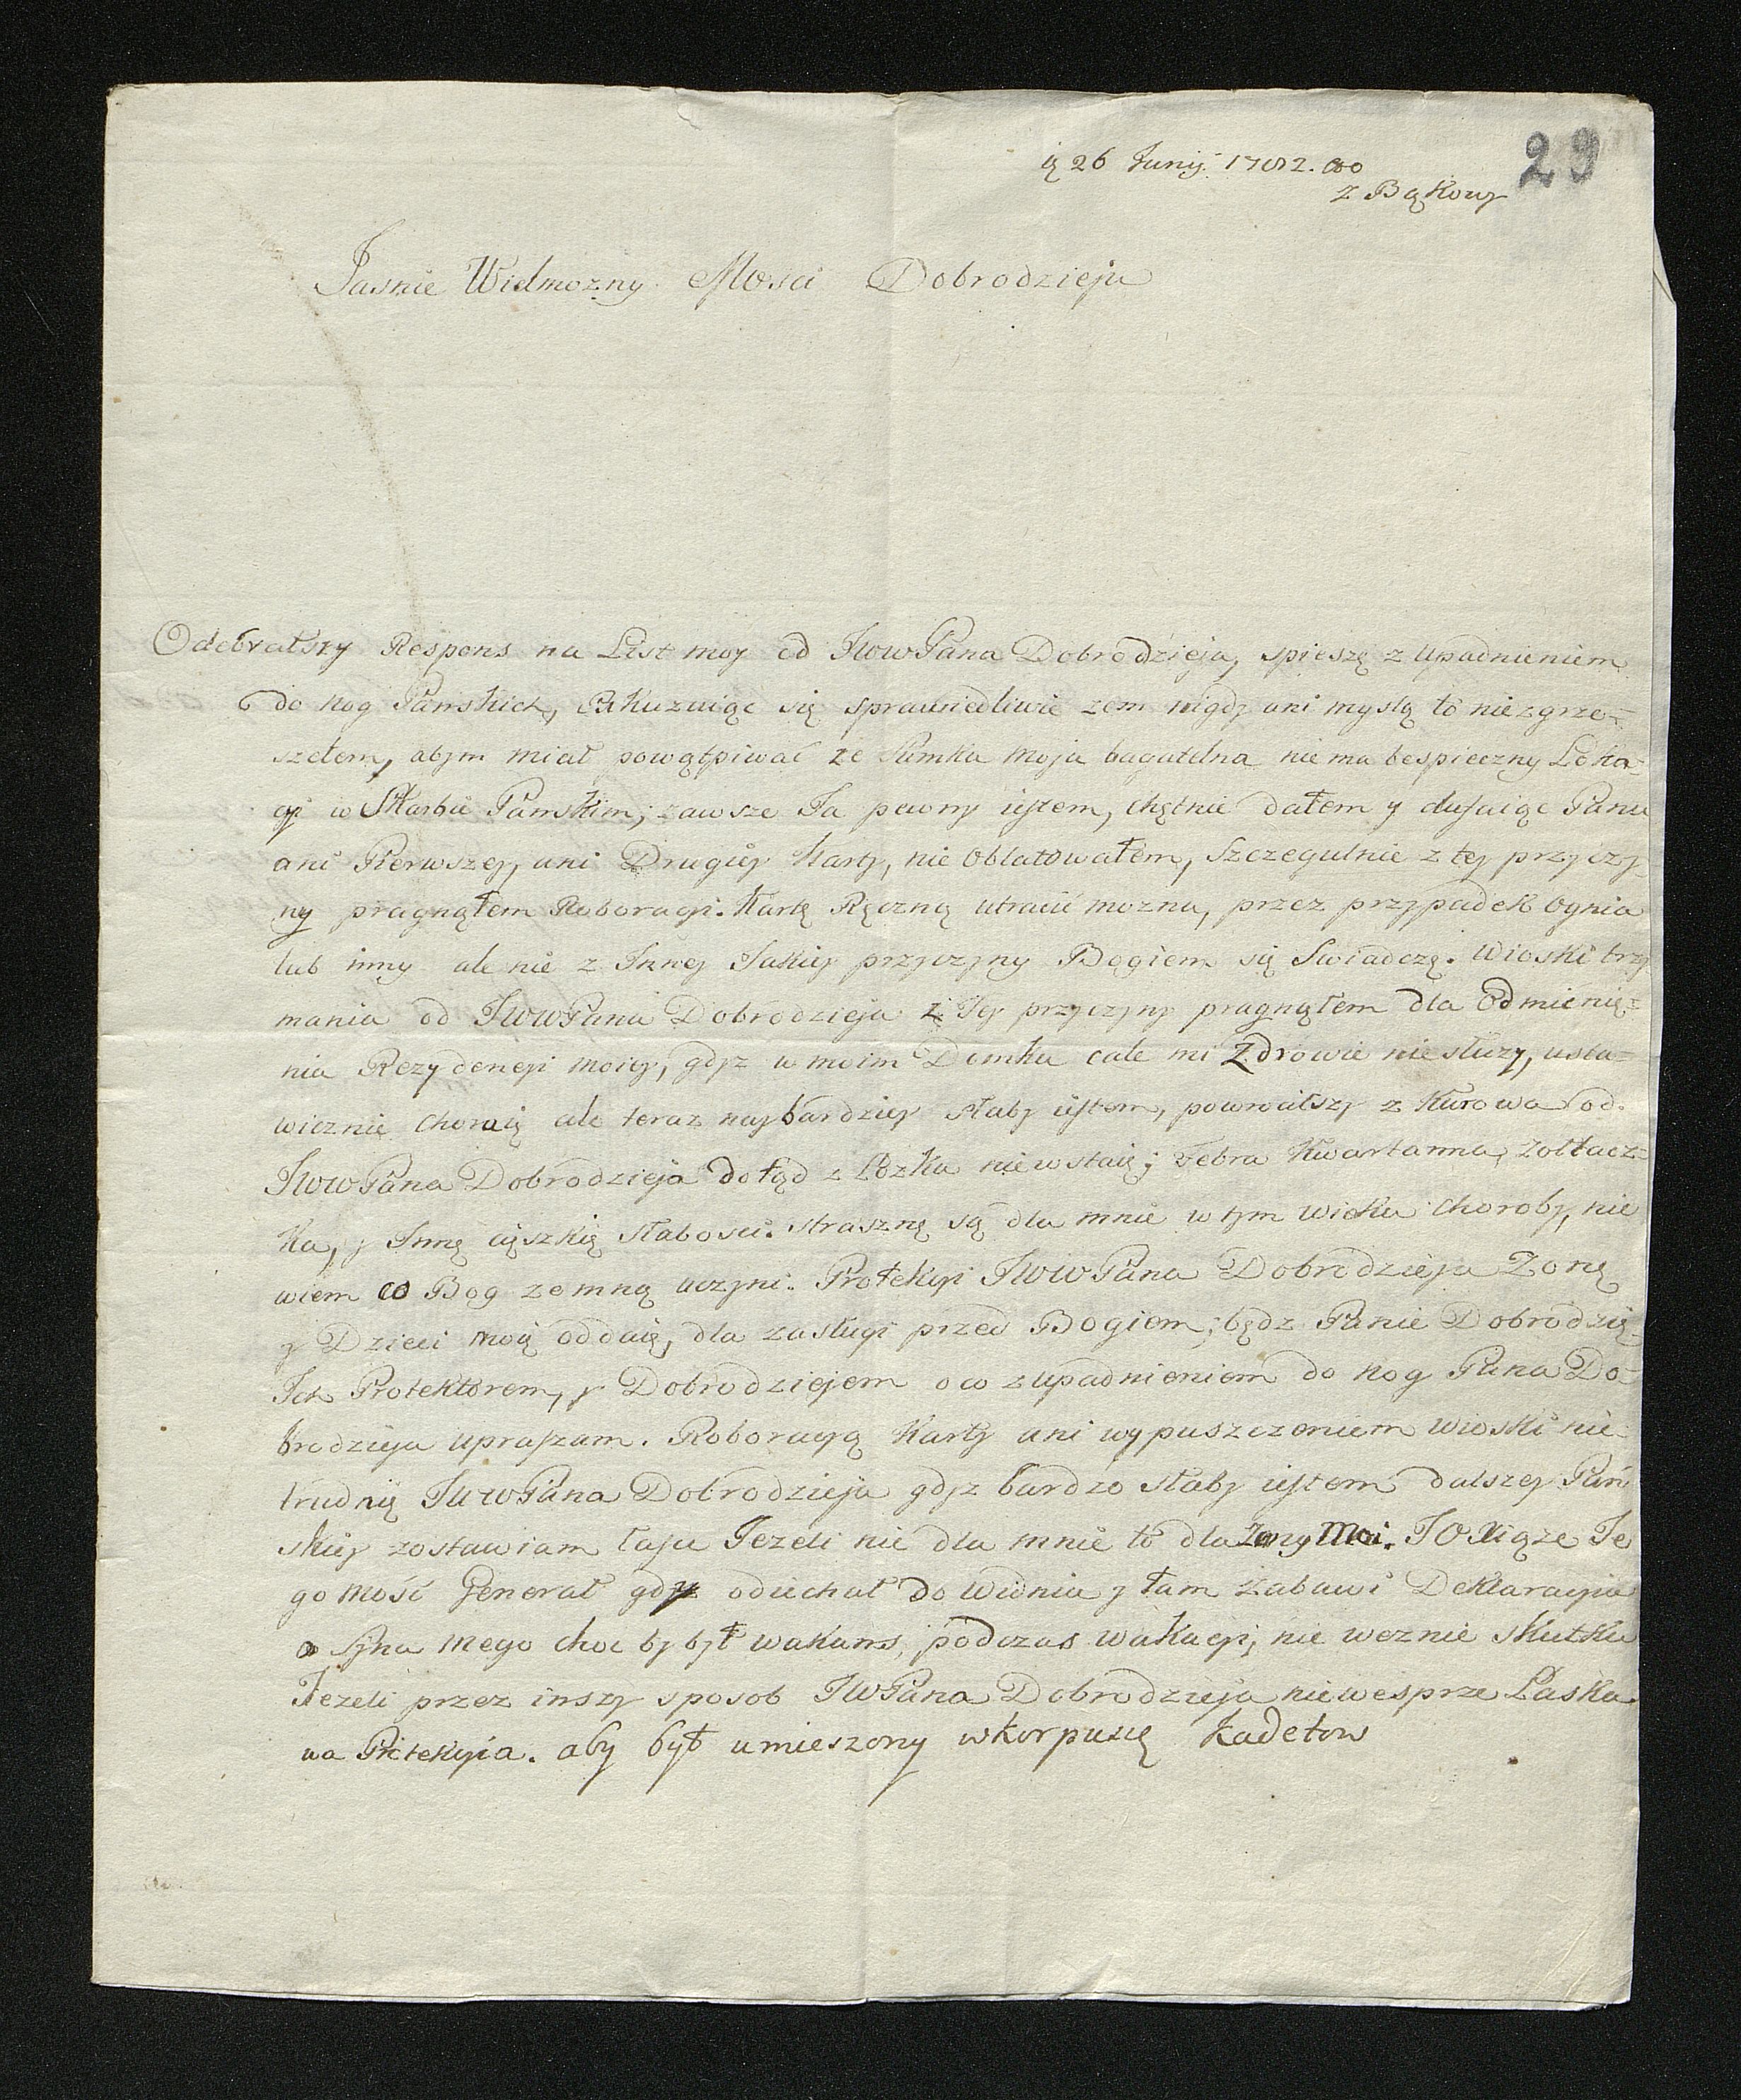 29
ię 26 Junij 1782. ao
z Bąkowy
Jasnie Wielmozny Mosci Dobrodzieju
Odebrałszy Respons na List moy od JWWPana Dobrodzieja, spieszę z upadnieniem
do nog Panskich, Exkuzuiąc się sprawiedliwie zem nigdy ani myslą to nie zgrze=
szełem, abym miał powątpiwać ze Sumka moja bagatelna nie ma bespieczny Loka=
cyi w Skarbie Panskim; zawsze Ja pewny iestem, chętnie dałem y dufaiąc Panu
ani Pierwszey, ani Drugiey karty, nie oblatowałem, Szczegulnie z tey przyczy
ny pragnąłem Roboracyi. Kartę Ręczną utracić mozna, przez przypadek Ognia
lub inny ale nie z Inney Jakiey przyczyny Bogiem się Swiadczę. Wioski trzy
mania od JWWPana Dobrodzieja z Tey przyczyny pragnąłem dla Odmienię=
nia Rezydencyi moiey, gdyz w moim Domku cale mi Zdrowie nie słuzy, usta=
wicznie choruię ale teraz naybardziey słaby iestem, powrociłszy z Kurowa od
JWWPana Dobrodzieja dotąd z Łozka nie wstaię; Febra Kwartanna, Zołtacz=
ka, y Innę cięszkię słabosci. strasznę są dla mnie w tym wieku choroby, nie
wiem co Bog zemną uczyni. Protekcyi JWWPana Dobrodzieja Zonę
y Dzieci moię oddaię, dla zasługi przed Bogiem; bądz Panie Dobrodzię
Ich Protektorem, y Dobrodziejem o co z upadnieniem do nog Pana Do=
brodzieja upraszam. Roboracyą karty ani wypuszczeniem wioski nie
trudnię JWWPana Dobrodzieja gdyz bardzo słaby iestem dalszey Pań
skiey zostawiam łasce Jezeli nie dla mnie to dla Zony Moi. JO Xiąze Je
go mość Generał gdyz odiechał do Widnia y tam zabawi Deklaracyia
o Syna mego choc by był wakans, podczas wakacyi, nie weznie skutku
Jezeli przez inszy sposob JWPana Dobrodzieja nie wesprze Łaska
wa Protekcyia. aby był umieszony w korpusię kadetow